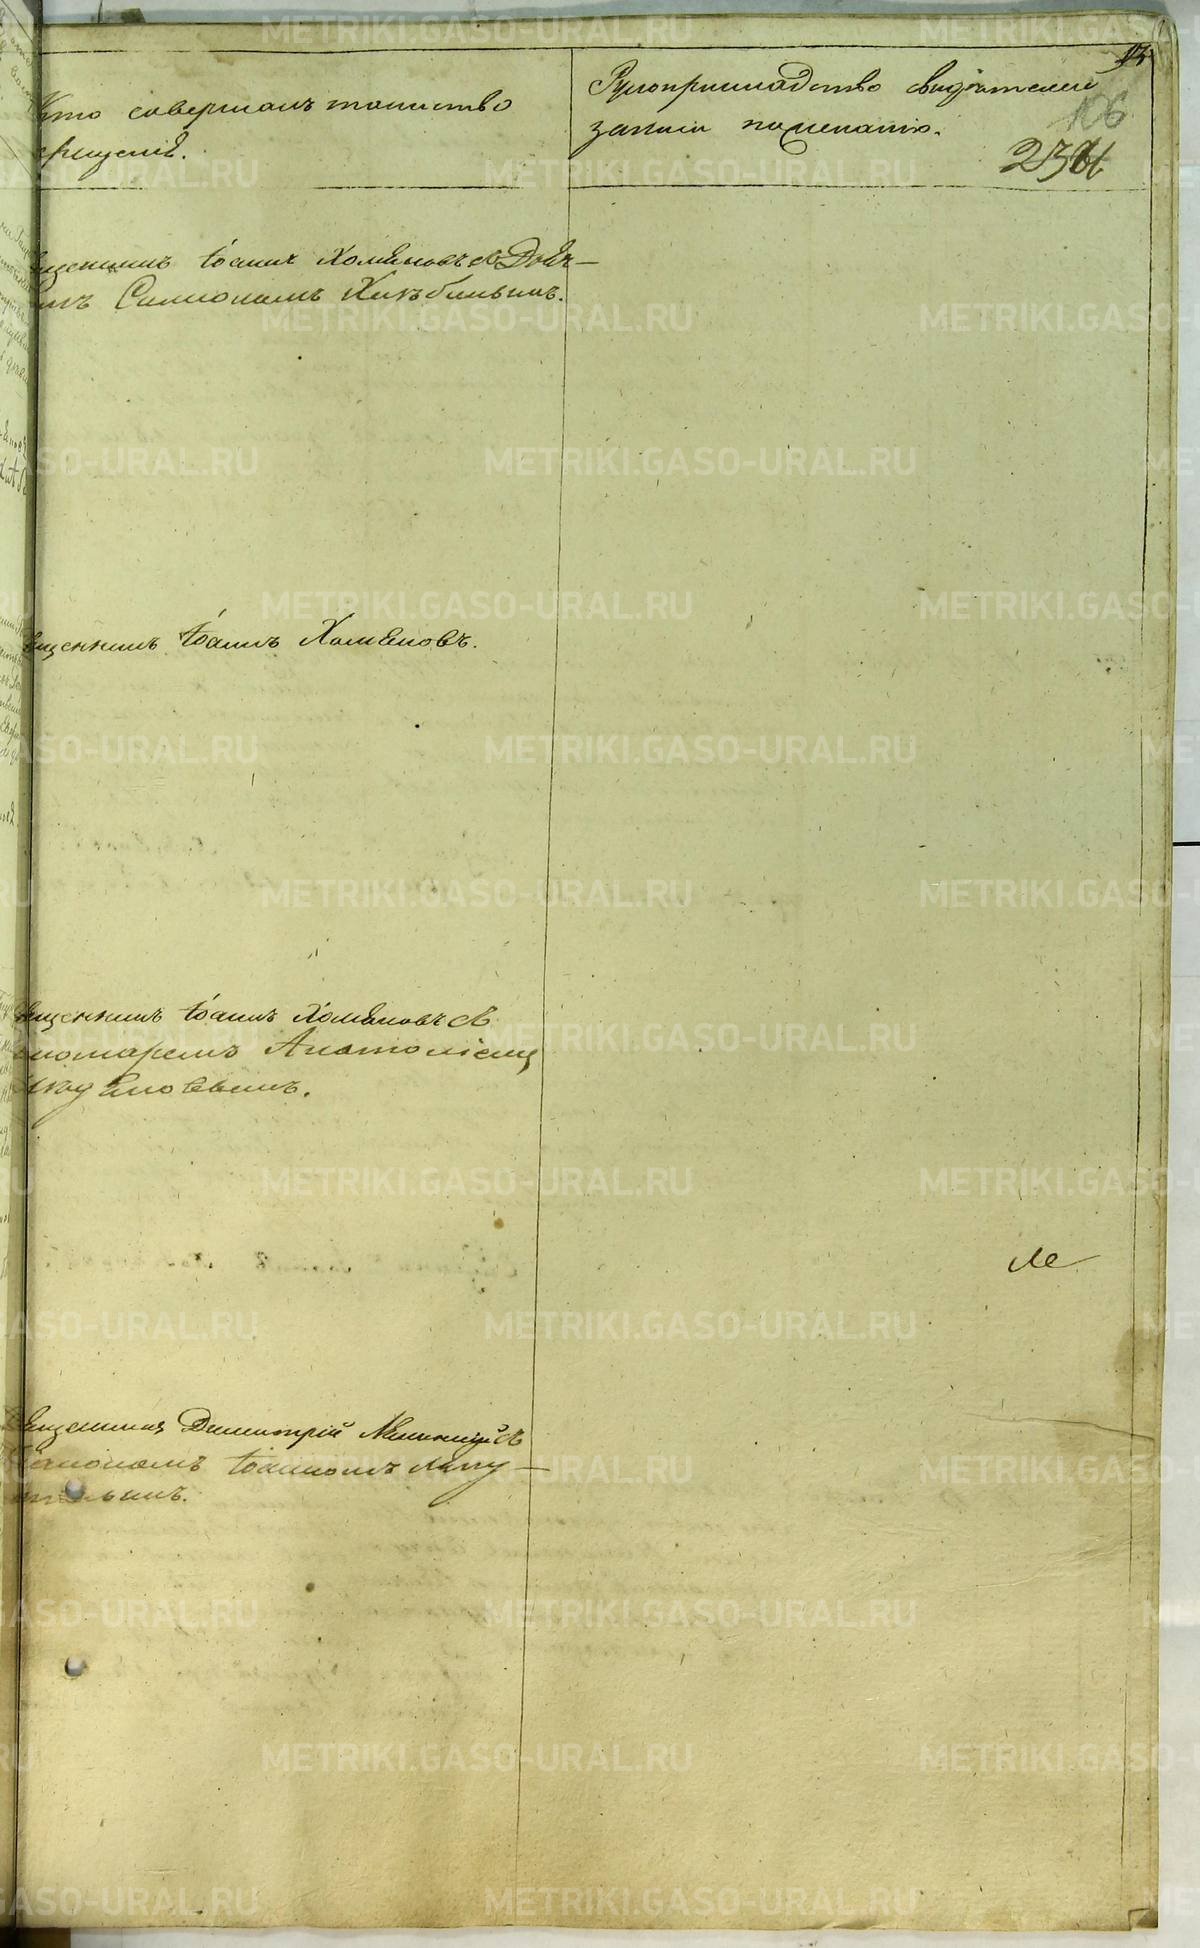 Кто совершалъ таинство
крещенія.
Рукоприкладство свидѣтелей
записи по желанію.
106
священникъ Іоаннъ Хомяковъ съ Дья-
Симеономъ
священникъ Іоаннъ Хомяковъ.
священникъ Іоаннъ Хомяковъ съ
пономаремъ Анатоліемъ
священникъ Димитрій съ
Діакономъ Іоанномъ Лапу-
METRIKI.GASO-URAL.RU